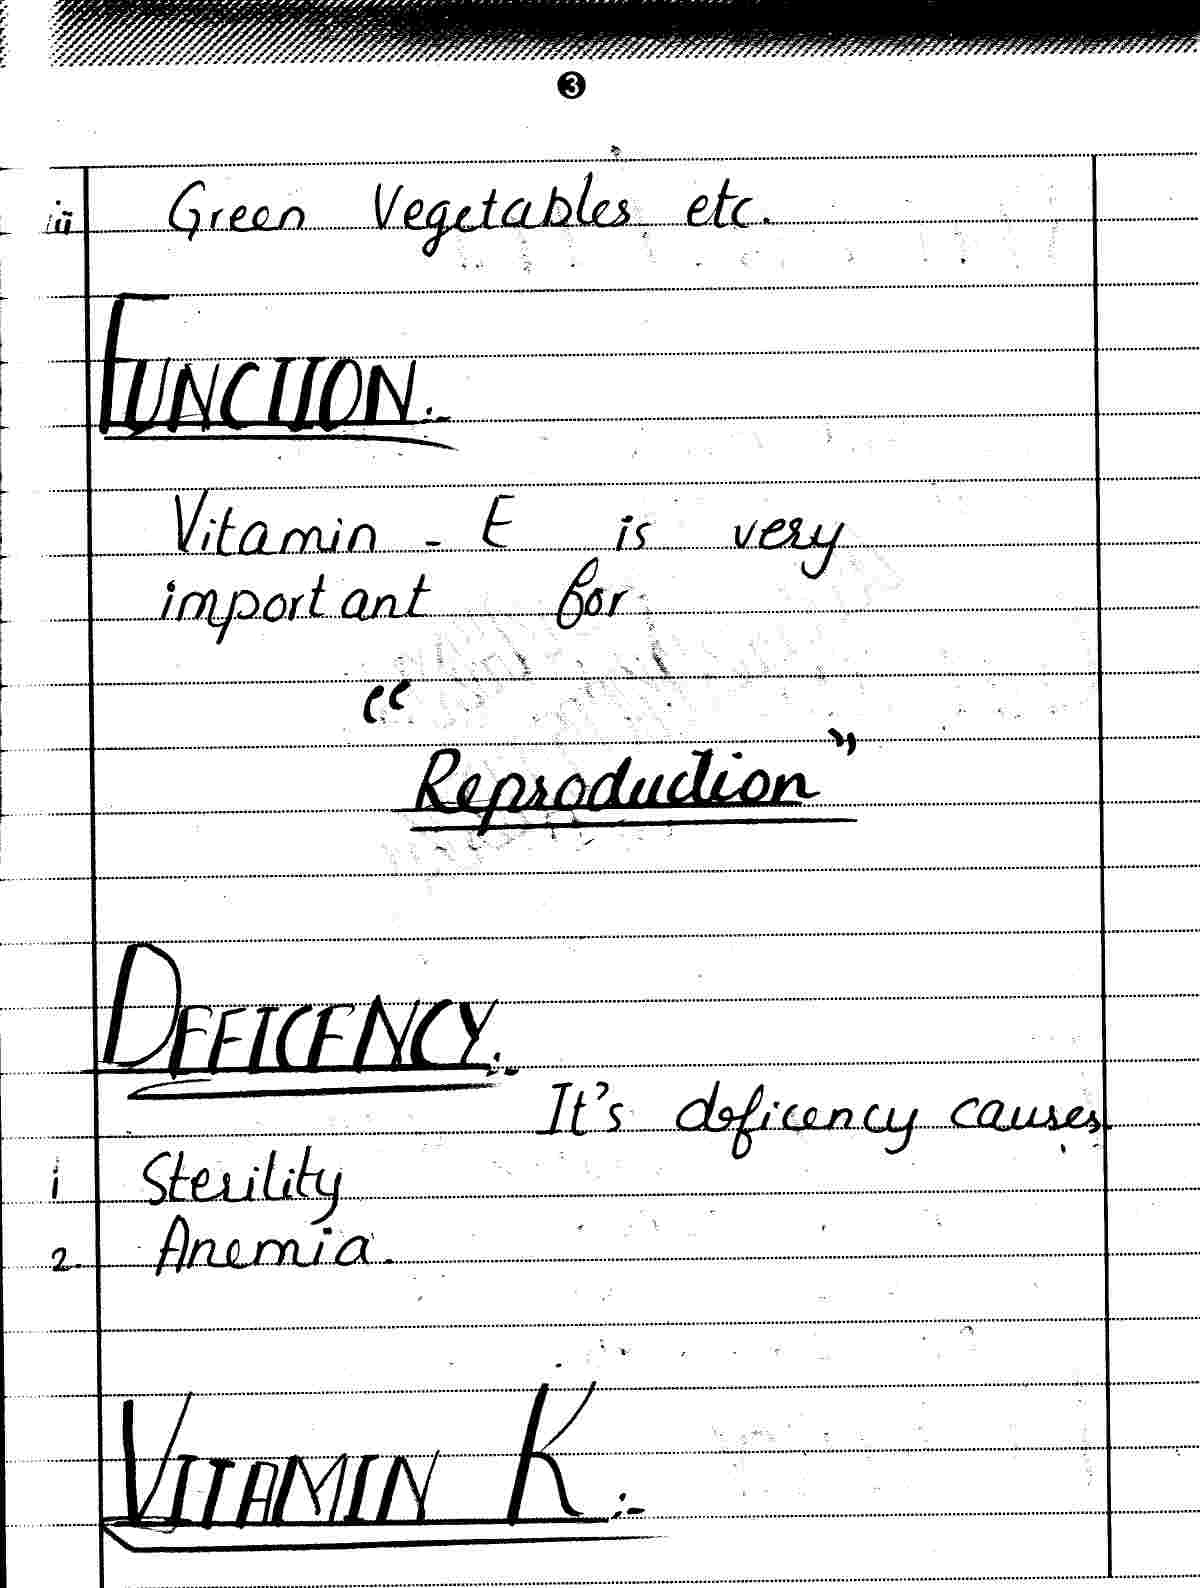 3
iii Green Vegetables etc.
FUNCTION:-
Vitamin - E is very
important for
“
Reproduction”
DEFICENCY:-
It's deficency causes
i Sterility
2. Anemia.
VITAMIN K:-